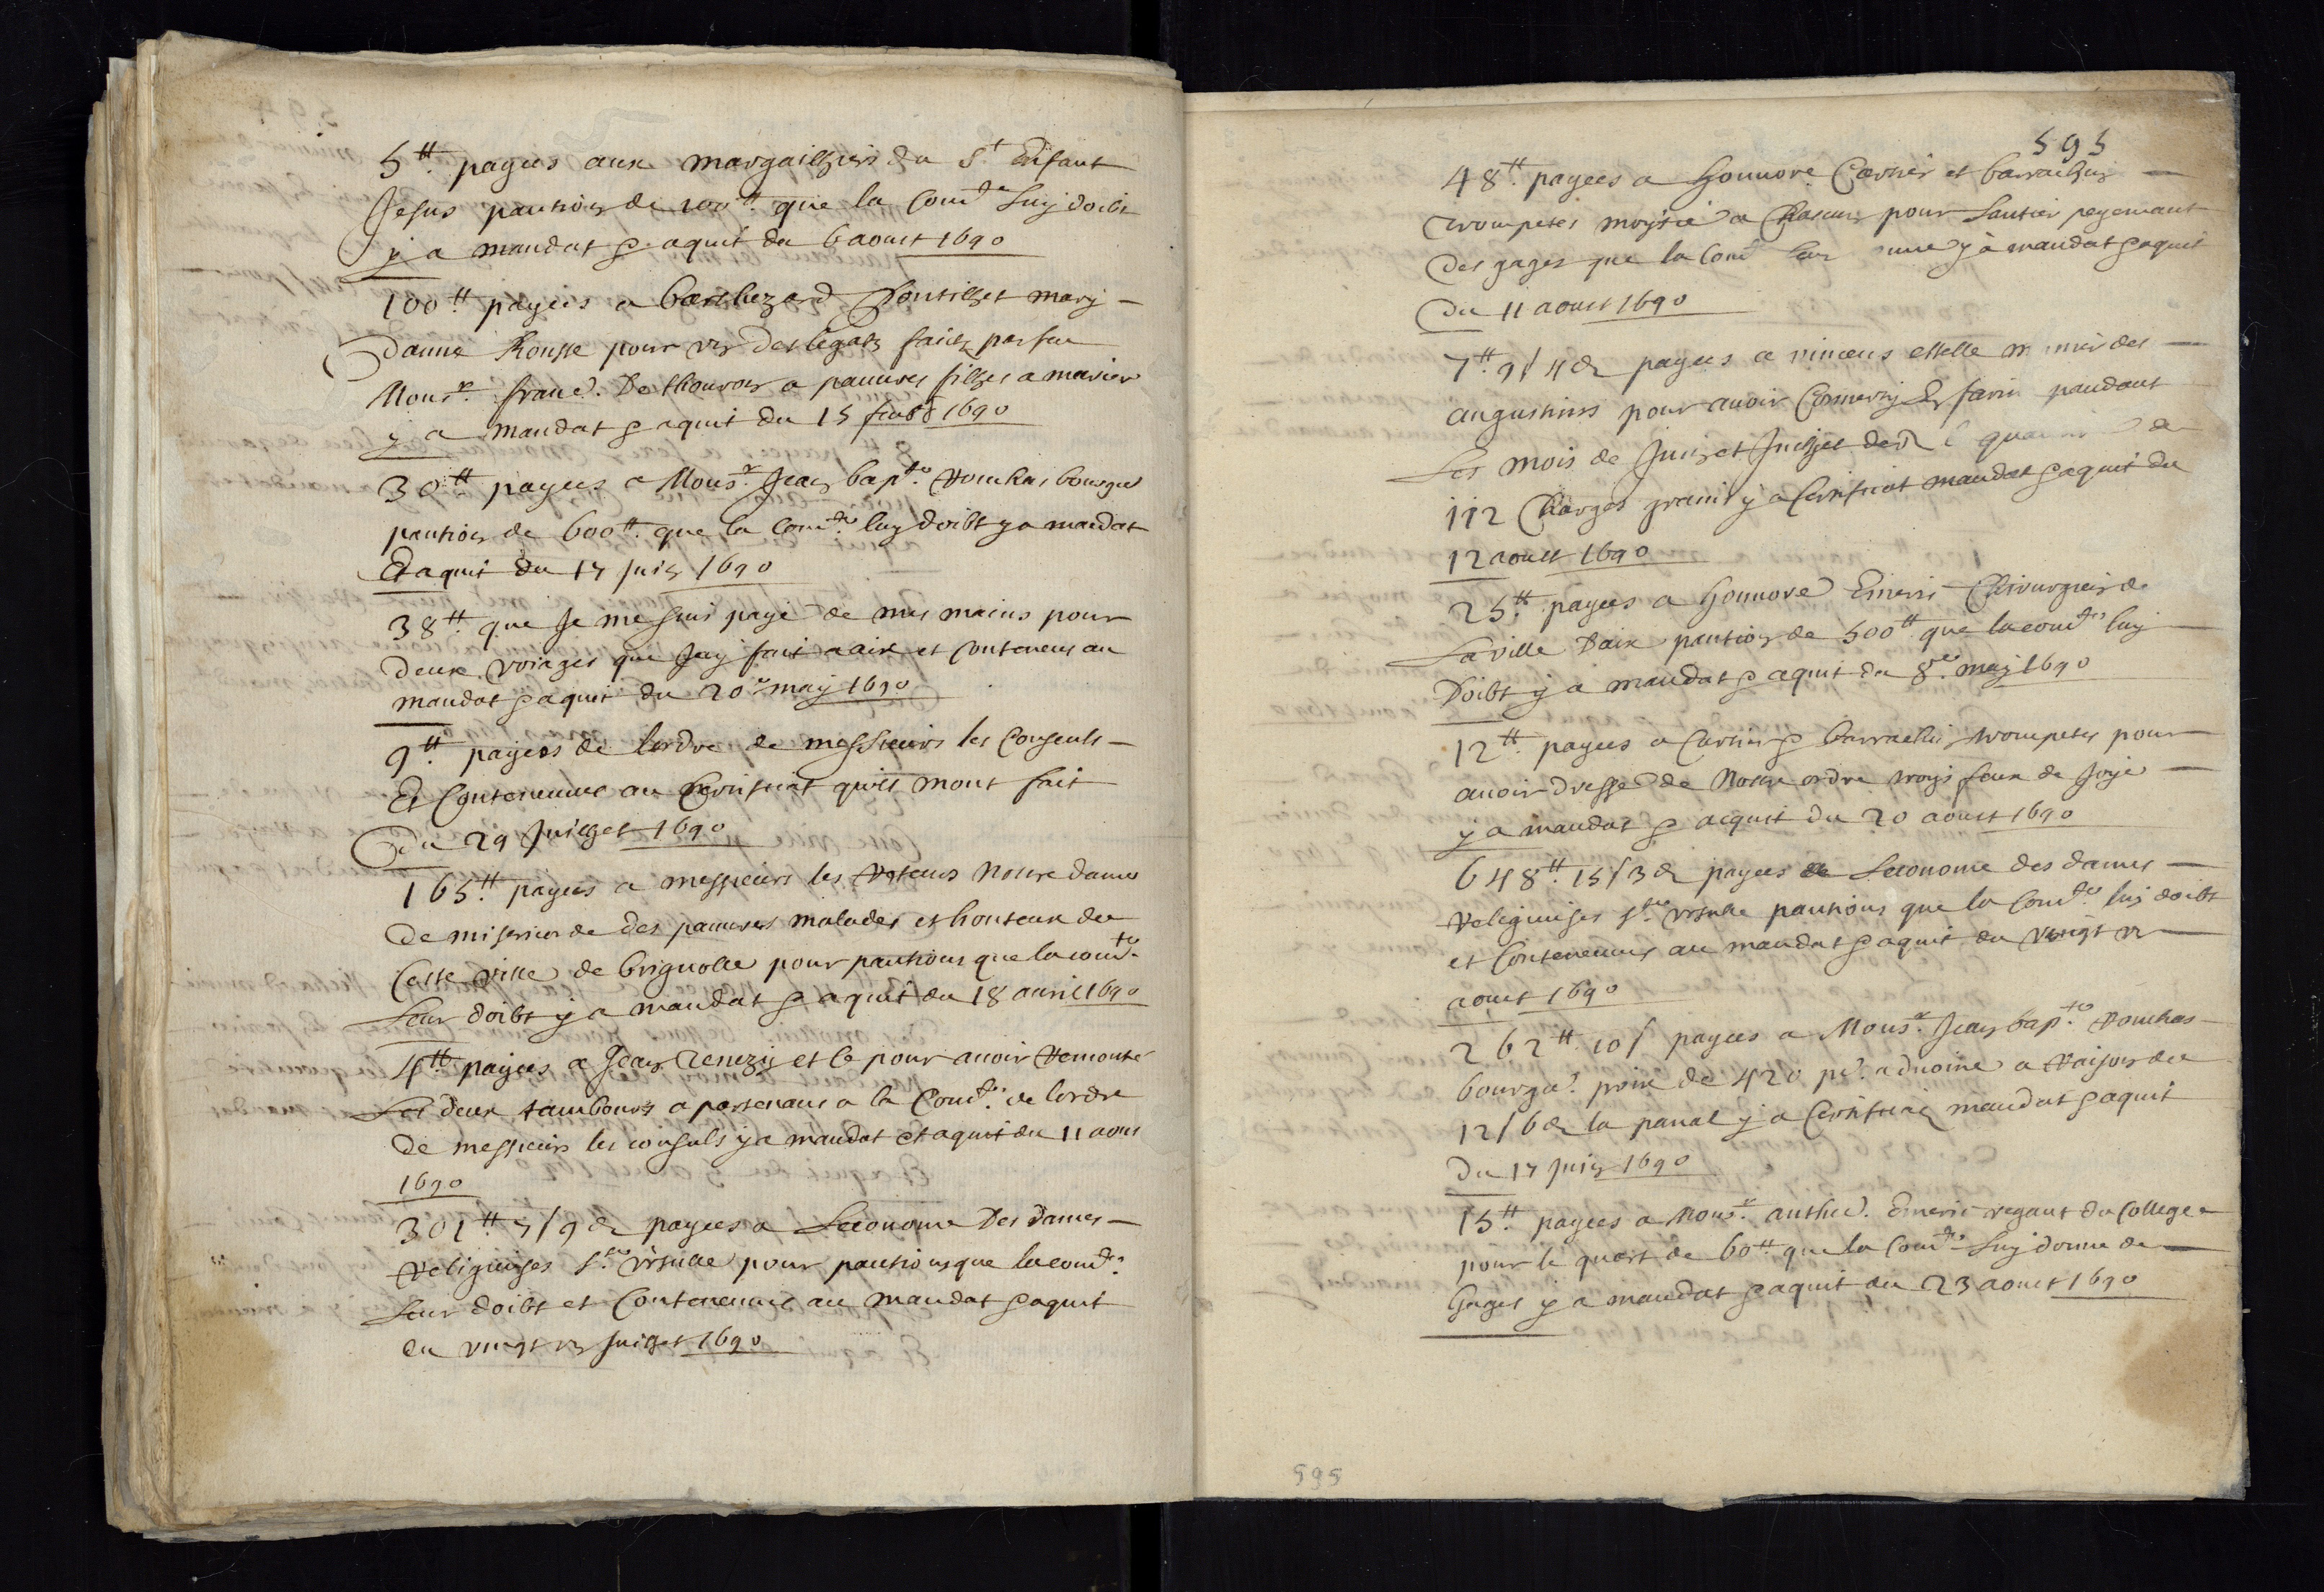 5tt. payees aux margailhiers du St Enfant
Jesus pantion de 100tt. que la Comte Luy doibt
y a mandat & aquit du 6 aoust 1690
100tt payees a Barthezard Pontilhet mary
Danne Rousse pour un des legatz faitz par feu
Monsr. franc. De Thouron a pauures filhes a marier
y a mandat & aquit du 15 feubr 1690
30tt payees a Monsr. Jean bapte. Roucha bourgo
pantion de 600tt. que la Comte. luy doibt y a mandat
Et aquit du 17 Juin 1690
38tt. que Je me suis payé de mes mains pour
deux voiages que Jay fait a aix et Conteneus au
mandat & aquit du 20e may 1690
9tt payees de lordre de messieurs les Consuls
Et Contenenue au Certificat quils mont fait
Du 29 Juilhet 1690
165tt. payees a messieurs les Recteurs Nostre dame
de misericorde des pauures malades et honteux de
Ceste ville de Brignolle pour pantions que la comte.
Leur doibt y a mandat & aquit du 18 auril 1690
4tt. payees a Jean et Ce pour auoir Remonté
Les deux tambours apartenans a la Comte. de lordre
de messieurs les consuls y a mandat et aquit du 11 aous
1690
301tt 7s 9d payees a Leconome Des dames
Religieuses Ste Ursulle pour pantions que la comte.
Leur doibt et Contenenue au mandat & aquit
du vingt un Juilhet 1690
595
48tt. payees a honnore Carnier et barralhier
trompetes moytié a Chascun pour Lantier payemant
Des gages que la Comte y a mandat & aquit
Du 11 aoust 1690
7tt. 9s 4d payees a vincens estelle des
augustins pour auoir Conuerty En farin pandant
Les mois de Juin et Juilhet der
112 Charges grains y a Certificat mandat & aquit du
12 aoust 1690
25tt. payees a honnore Emeric Chirurgien de
La ville Daix pantion de 500tt. que la comte luy
Doibt y a mandat & aquit du 8e. may 1690
12tt. payees a Carnier & barralhier trompetes pour
auoir dressé de Nostre ordre troys feux de Joye
y a mandat & acquit du 20 aoust 1690
648tt. 15s 3d payees a Leconome des dames
Religieuses Ste Ursulle pantions que la Comte. luy doibt
et Contenenues au mandat & aquit du vingt un
aoust 1690
262tt 10s payees a Monsr. Jean bapte Rouchas
bourgo. prix de 420 px. aduoine a Raison de
12s 6d la panal y a Certificat mandat & aquit
du 17 Juin 1690
15tt. payees a Monsr. anthe. Emeric regant du College
pour le quart de 60tt. que la Comte. Luy donne de
Gages y a mandat & aquit du 23 aoust 1690
595